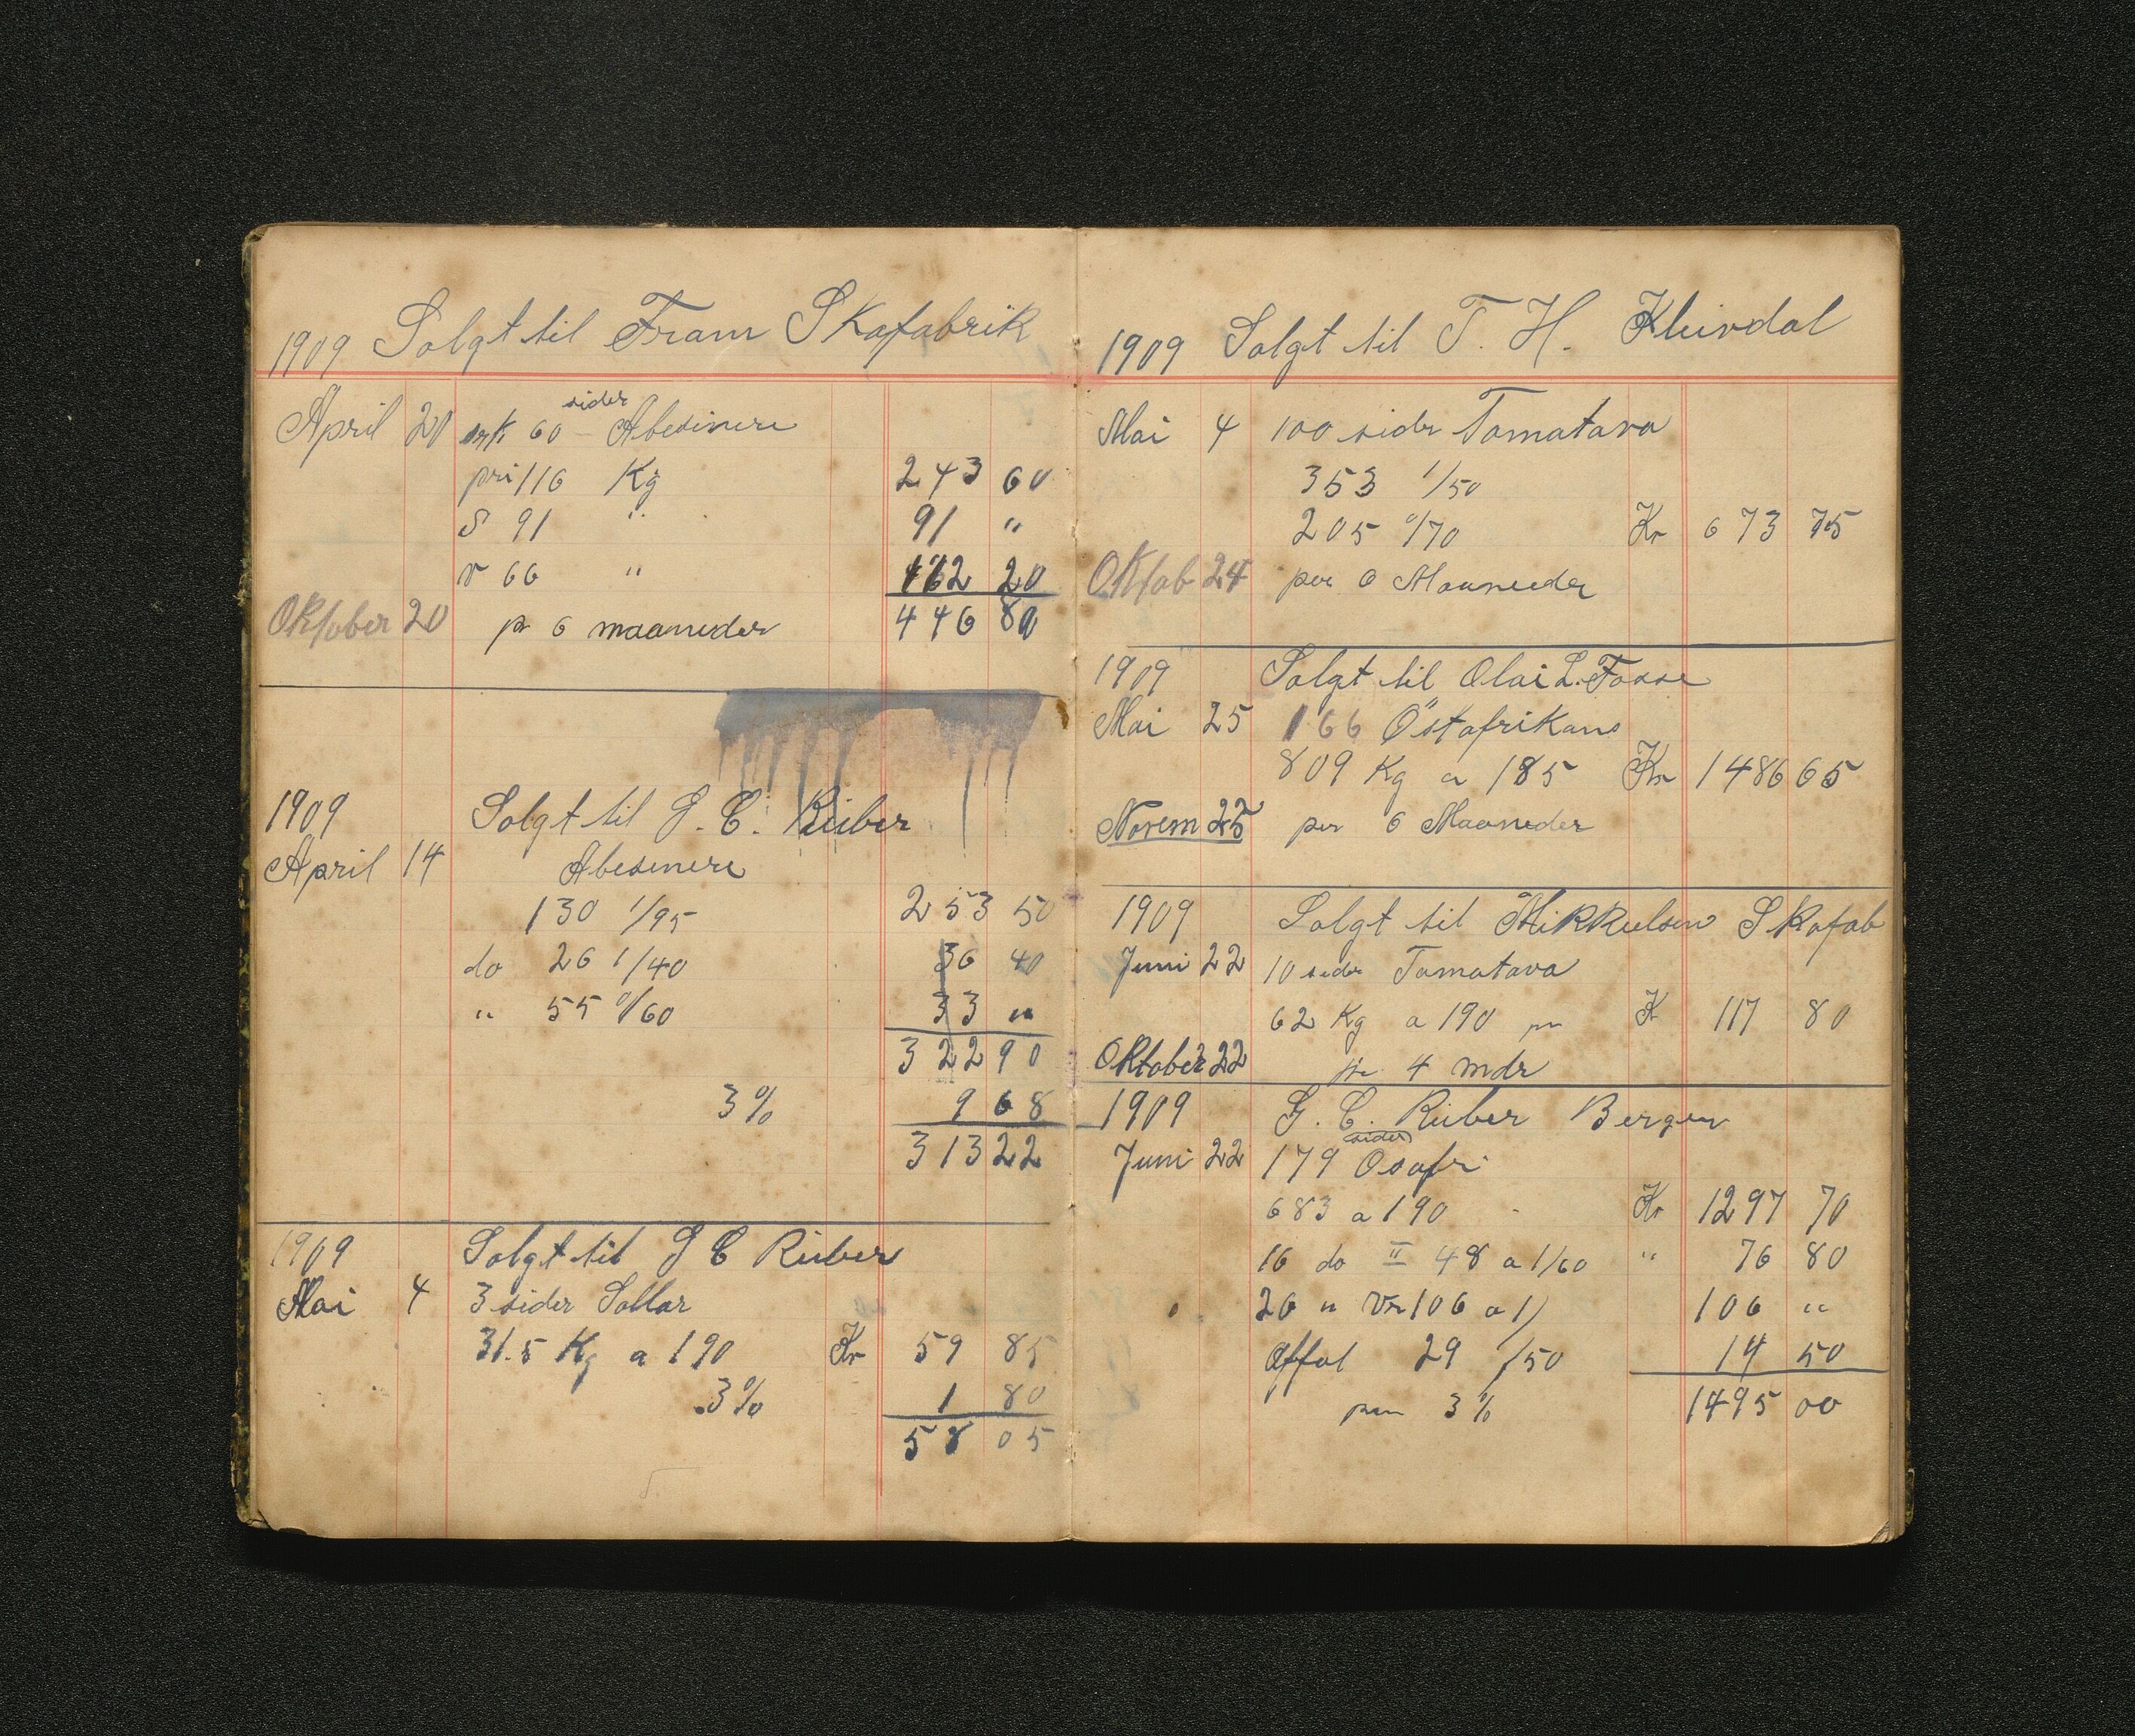 1909 Solgt til Fram Skofabrik
April 20 sider
60 - Abesinere
pri 116 Kg 243 60
S 91 " 91 "
v 66 " 112 20
Oktober 20 pr 6 maaneder 446 80
1909 Solgt til G. C. Rieber
April 14 Abesinere
130 1/95 253 50
do 26 1/40 36 40
" 55 0/60 33 "
322 90
3% 9 68
313 22
1909 Solgt til G C Rieber
Mai 4 3 sider
31.5 Kg a 190 Kr 59 85
3% 1 80
58 05
1909 Solgt til T. H. Kleivdal
Mai 4 100 sider Tamatava
353 1/50
205 0/70 Kr 673 75
Oktob 24 per 6 Maaneder
1909 Solgt til Olai L. Fosse
Mai 25 166 Östafrikans
809 Kg a 185 Kr 1486 65
Novem 25 per 6 Maaneder
1909 Solgt til Mikkelsen Skofab
Juni 22 10 sider Tamatava
62 Kg a 190 pr K 117 80
Oktober 22 pr 4 mdr
1909 G. C. Rieber Bergen
sider
Juni 22 179 Osafri
683 a 190 Kr 1297 70
16 do II 48 a 1/60 " 76 80
26 " Vr 106 a 1) 106 "
Affal 29 /50 14 50
per 3% 1495 00